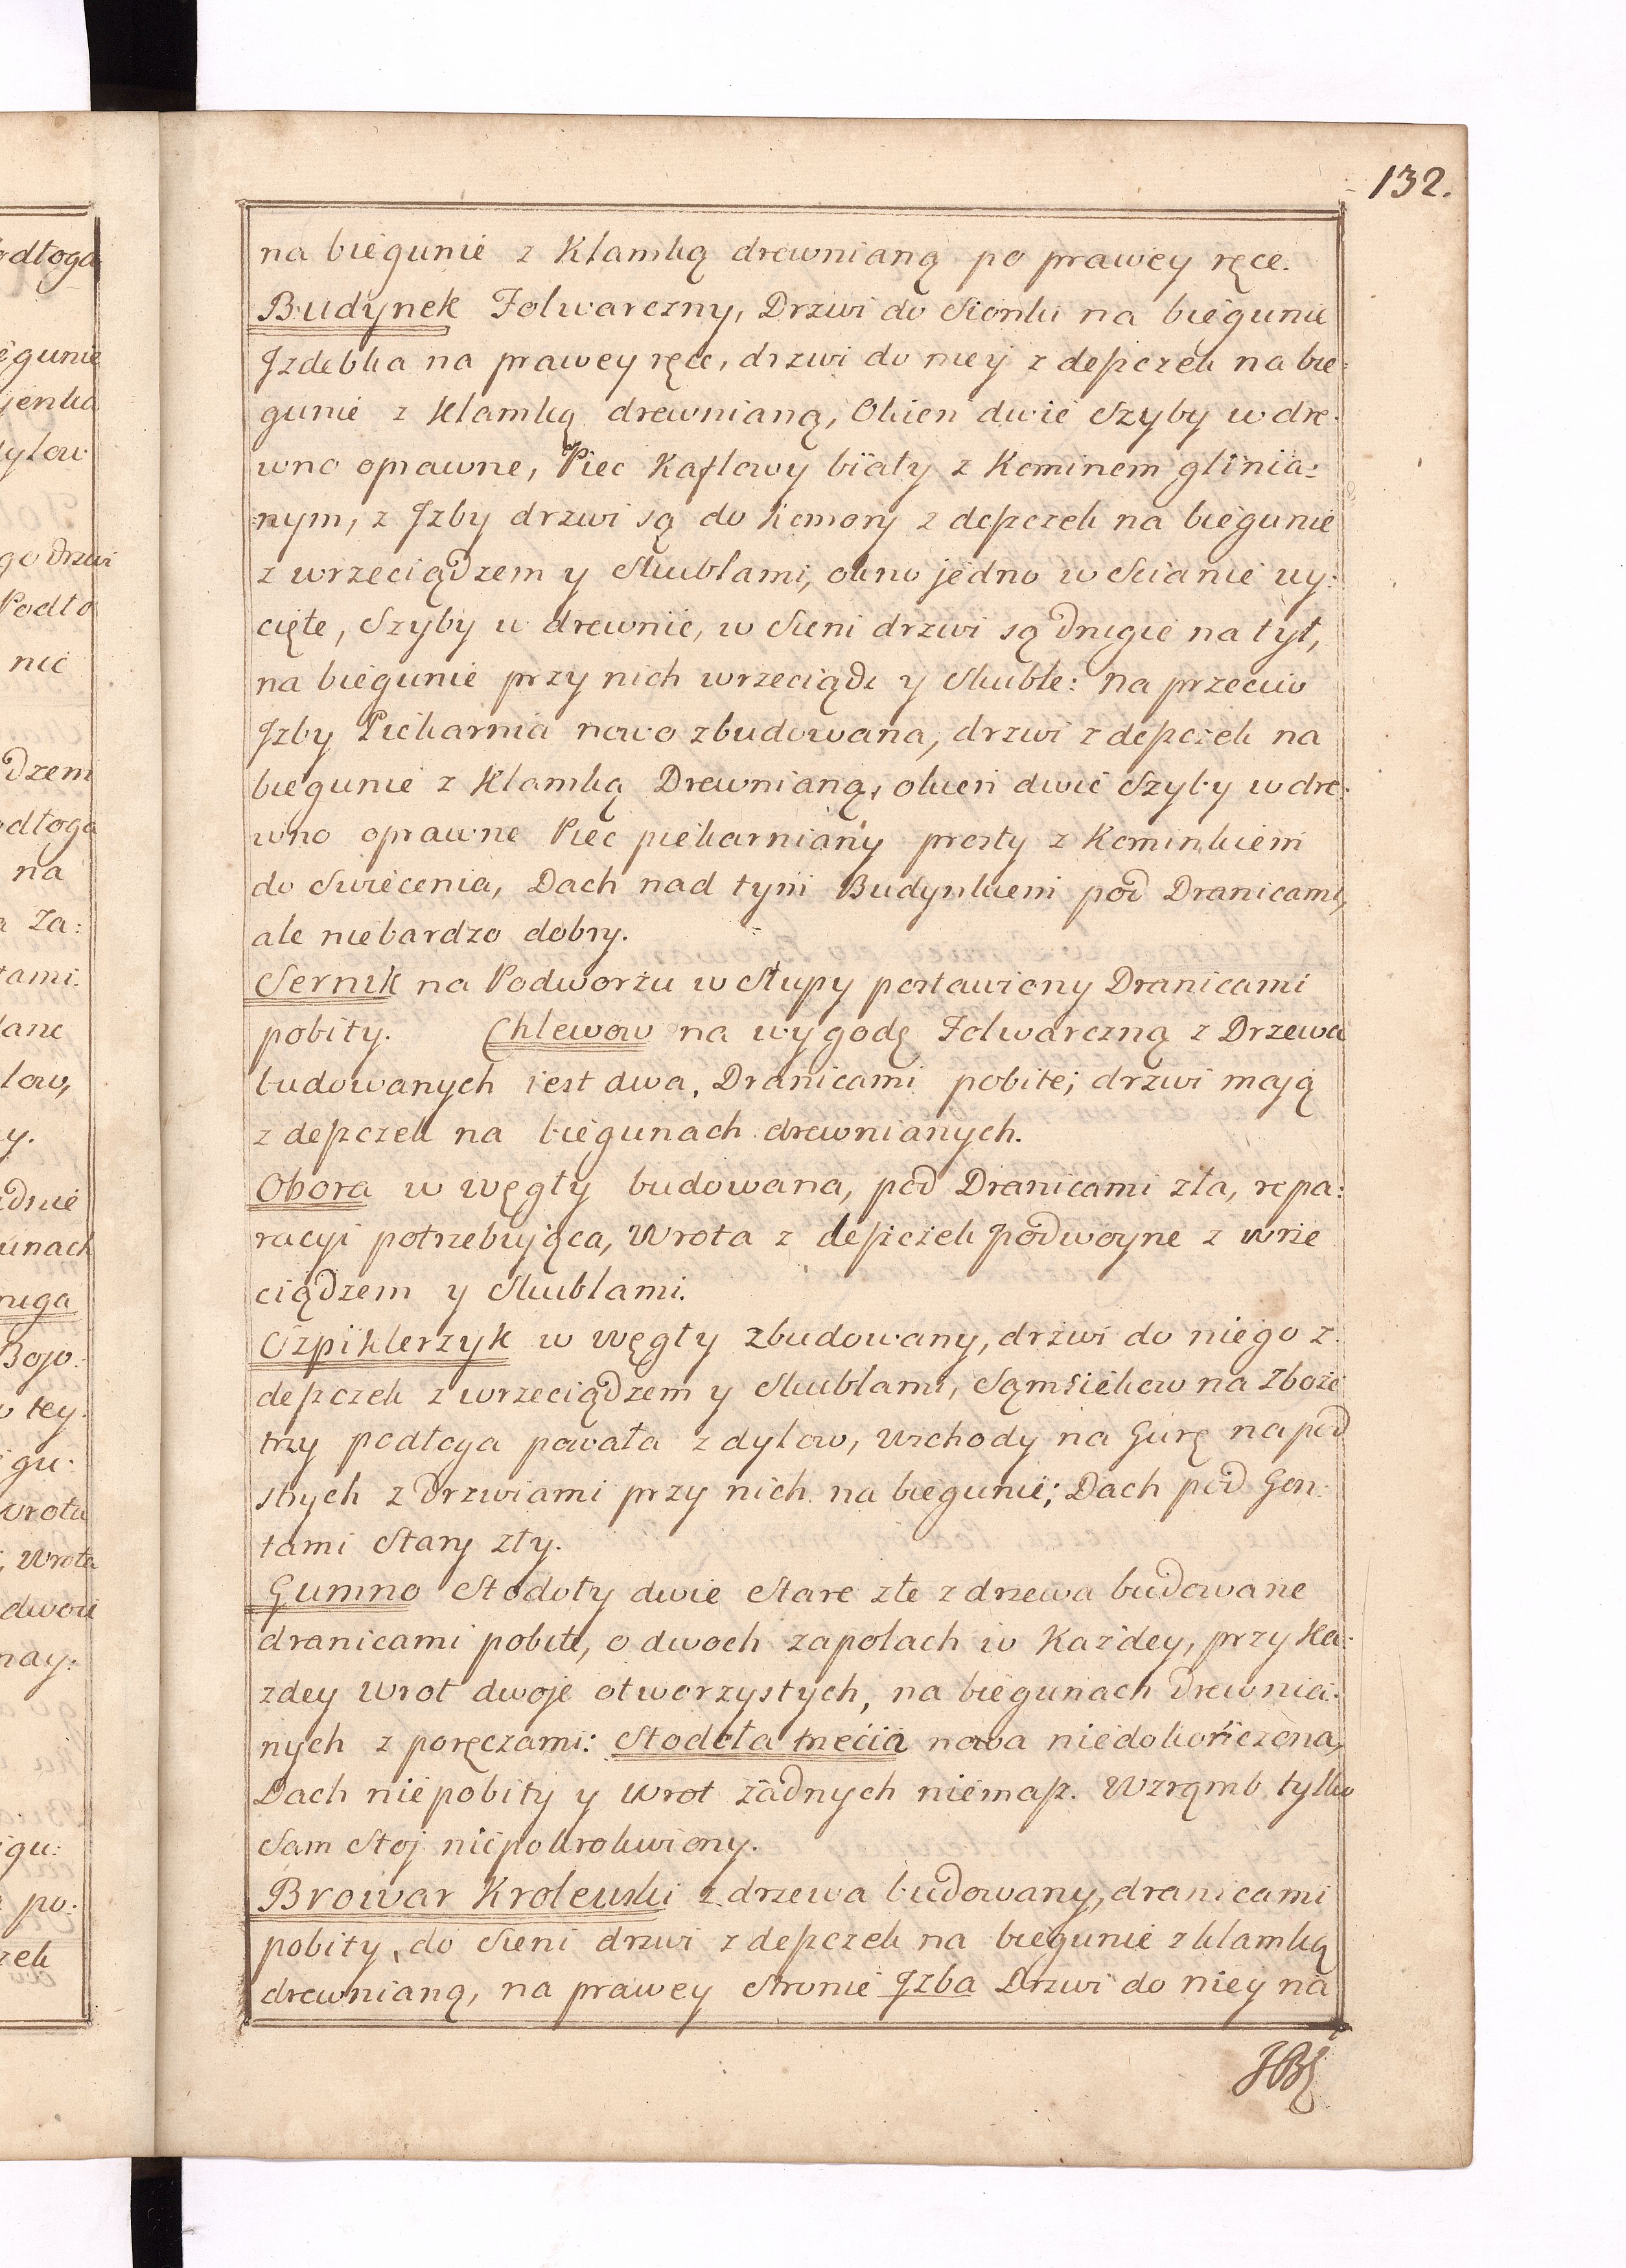 132.
na biegunie z Klamką drewnianą po prawey ręce.
Budynek Folwarczny, Drzwi do Sionki na biegunie
Jzdebka na prawey ręce, drzwi do niey z depczek na bie:
gunie z Klamką drewnianą, Okien dwie Szyby w dre:
wno oprawne, Piec Kaflowy biały z Kominem glinia:
nym, z Jzby drzwi są do Komory z depczek na biegunie
z wrzeciądzem y Skublami, okno jedno w Scianie wy:
cięte, Szyby w drewnie, w Sieni drzwi są drugie na tył,
na biegunie przy nich wrzeciądz y Skuble: na przeciw
Jzby Piekarnia nowo zbudowana, drzwi z depczek na
biegunie z Klamką Drewnianą, okien dwie Szyby w dre:
wno oprawne Piec piekarniany prosty z Kominkiem
do Swiecenia, Dach nad tym Budynkiem pod Dranicami,
ale niebardzo dobry.
Sernik na Podworzu w Słupy postawiony Dranicami
pobity. Chlewow na wygodę Folwarczną z Drzewa
budowanych iest dwa, Dranicami pobite, drzwi maią
z depczek na biegunach drewnianych.
Obora w węgły budowana, pod Dranicami zła, repa:
racyi potrzebuiąca, Wrota z depczek podwoyne z wrze
ciądzem y Skublami.
Szpiklerzyk w węgły zbudowany, drzwi do niego z
depczek z wrzeciądzem y Skublami, Sąmsiekow na Zboże
trzy podłoga powała z dylow, Wschody na Gurę na pod
strych z drzwiami przy nich na biegunie; Dach pod Gon:
tami Stary zły.
Gumno Stodoły dwie Stare złe z drzewa budowane
dranicami pobite, o dwoch zapolach w Każdey, przy Ka:
zdey Wrot dwoje otworzystych, na biegunach drewnia:
nych z poręczami: Stodoła trzecia nowa niedokończona,
Dach niepobity y Wrot żadnych niemasz. Wzrąmb tylko
Sam Stoj niepokrokwiony.
Browar Krolewski z drzewa budowany, dranicami
pobity, do Sieni drzwi z depczek na biegunie z klamką
drewnianą, na prawey Stronie Jzba Drzwi do niey na